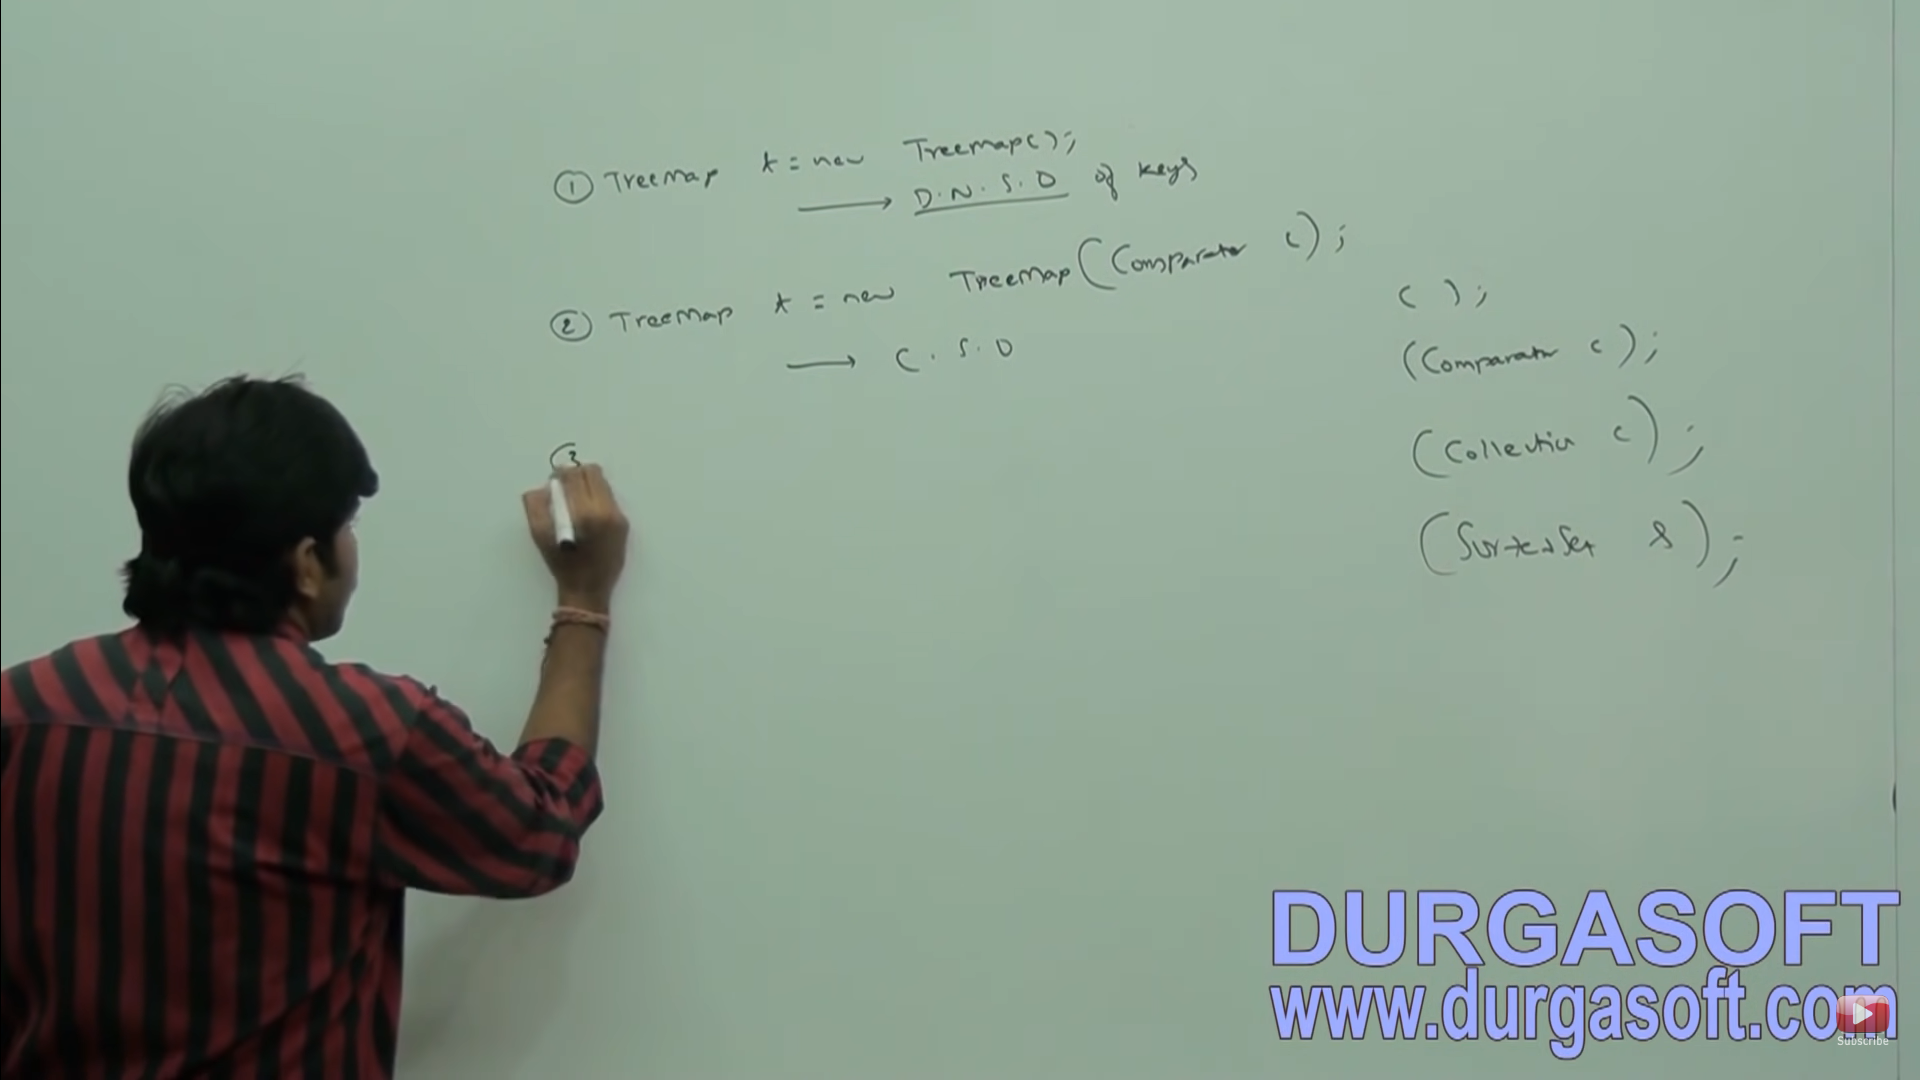 ① TreeMap t = new Treemap();
→ D.N.S.O of keys
② TreeMap t = new TreeMap(Comparator c);
→ C.S.O
(3
( );
(Comparator c);
(Collection c);
(SortedSet s);
DURGASOFT
www.durgasoft.com
Subscribe